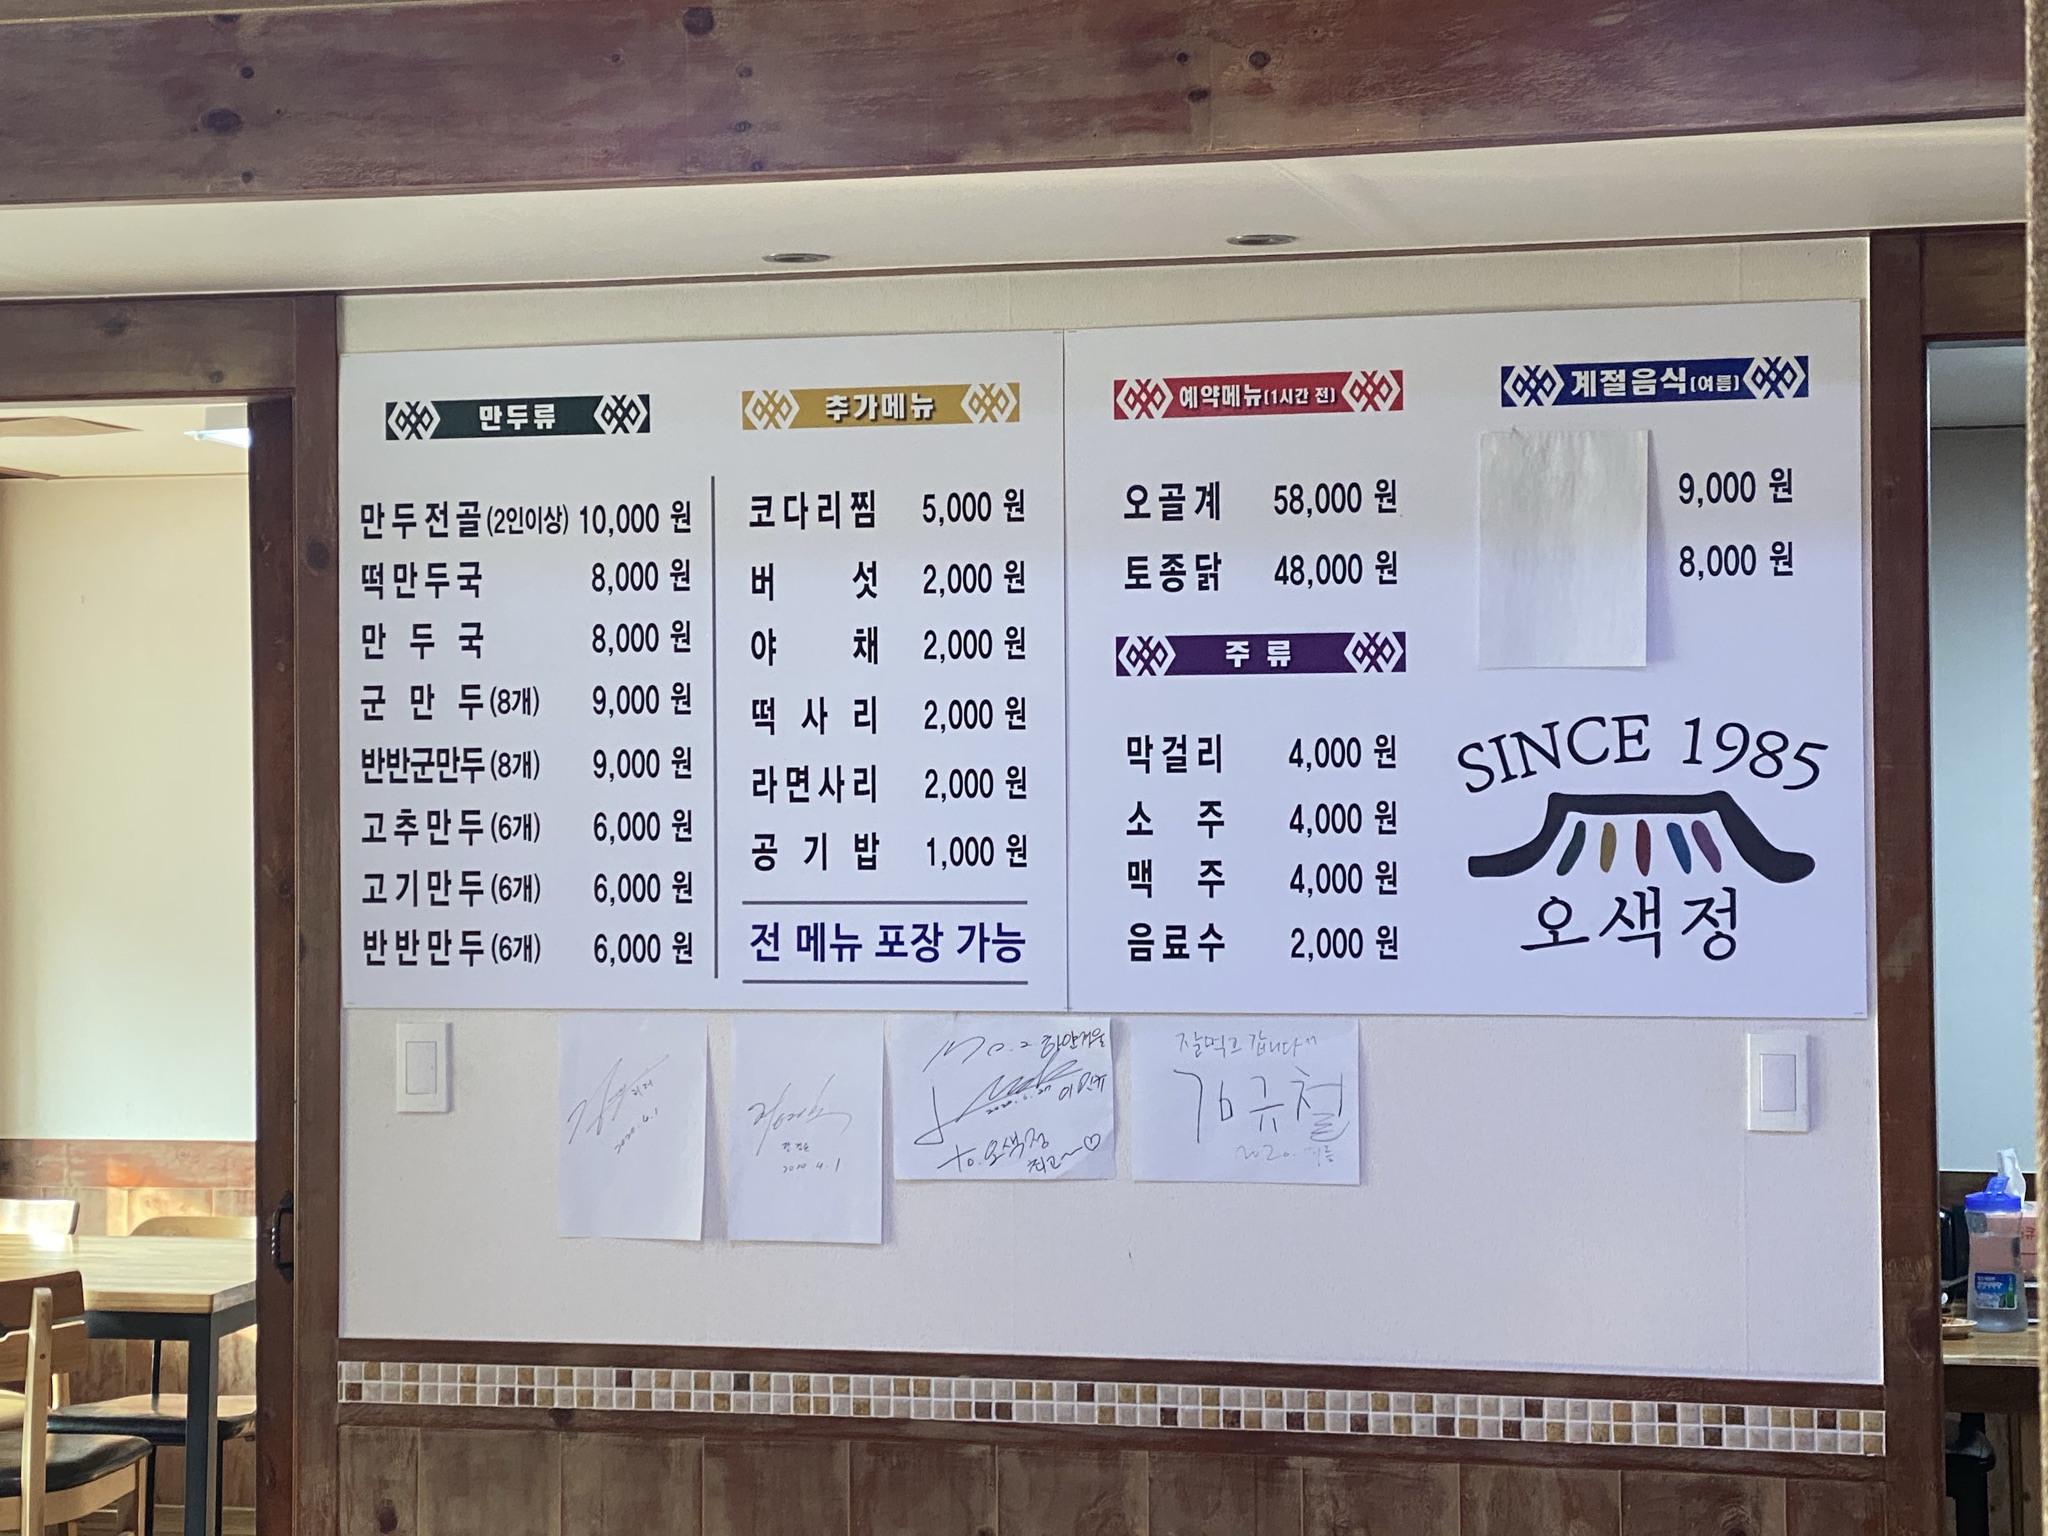 만두류
만두전골(2인이상) 10,000 원
떡만두국 8,000 원
만두국 8,000 원
군만두(8개) 9,000 원
반반군만두(8개) 9,000 원
고추만두(6개) 6,000 원
고기만두(6개) 6,000 원
반반만두(6개) 6,000 원
추가메뉴
코다리찜 5,000 원
버섯 2,000 원
야채 2,000 원
떡사리 2,000 원
라면사리 2,000 원
공기밥 1,000 원
전 메뉴 포장 가능
예약메뉴(1시간 전)
오골계 58,000 원
토종닭 48,000 원
주류
막걸리 4,000 원
소주 4,000 원
맥주 4,000 원
음료수 2,000 원
계절음식(여름)
9,000 원
8,000 원
SINCE 1985
오색정
2020. 4. 1
2020. 4. 1
to. 오색정
최고~♡
잘먹고 갑니다
김규철
2020. 여름